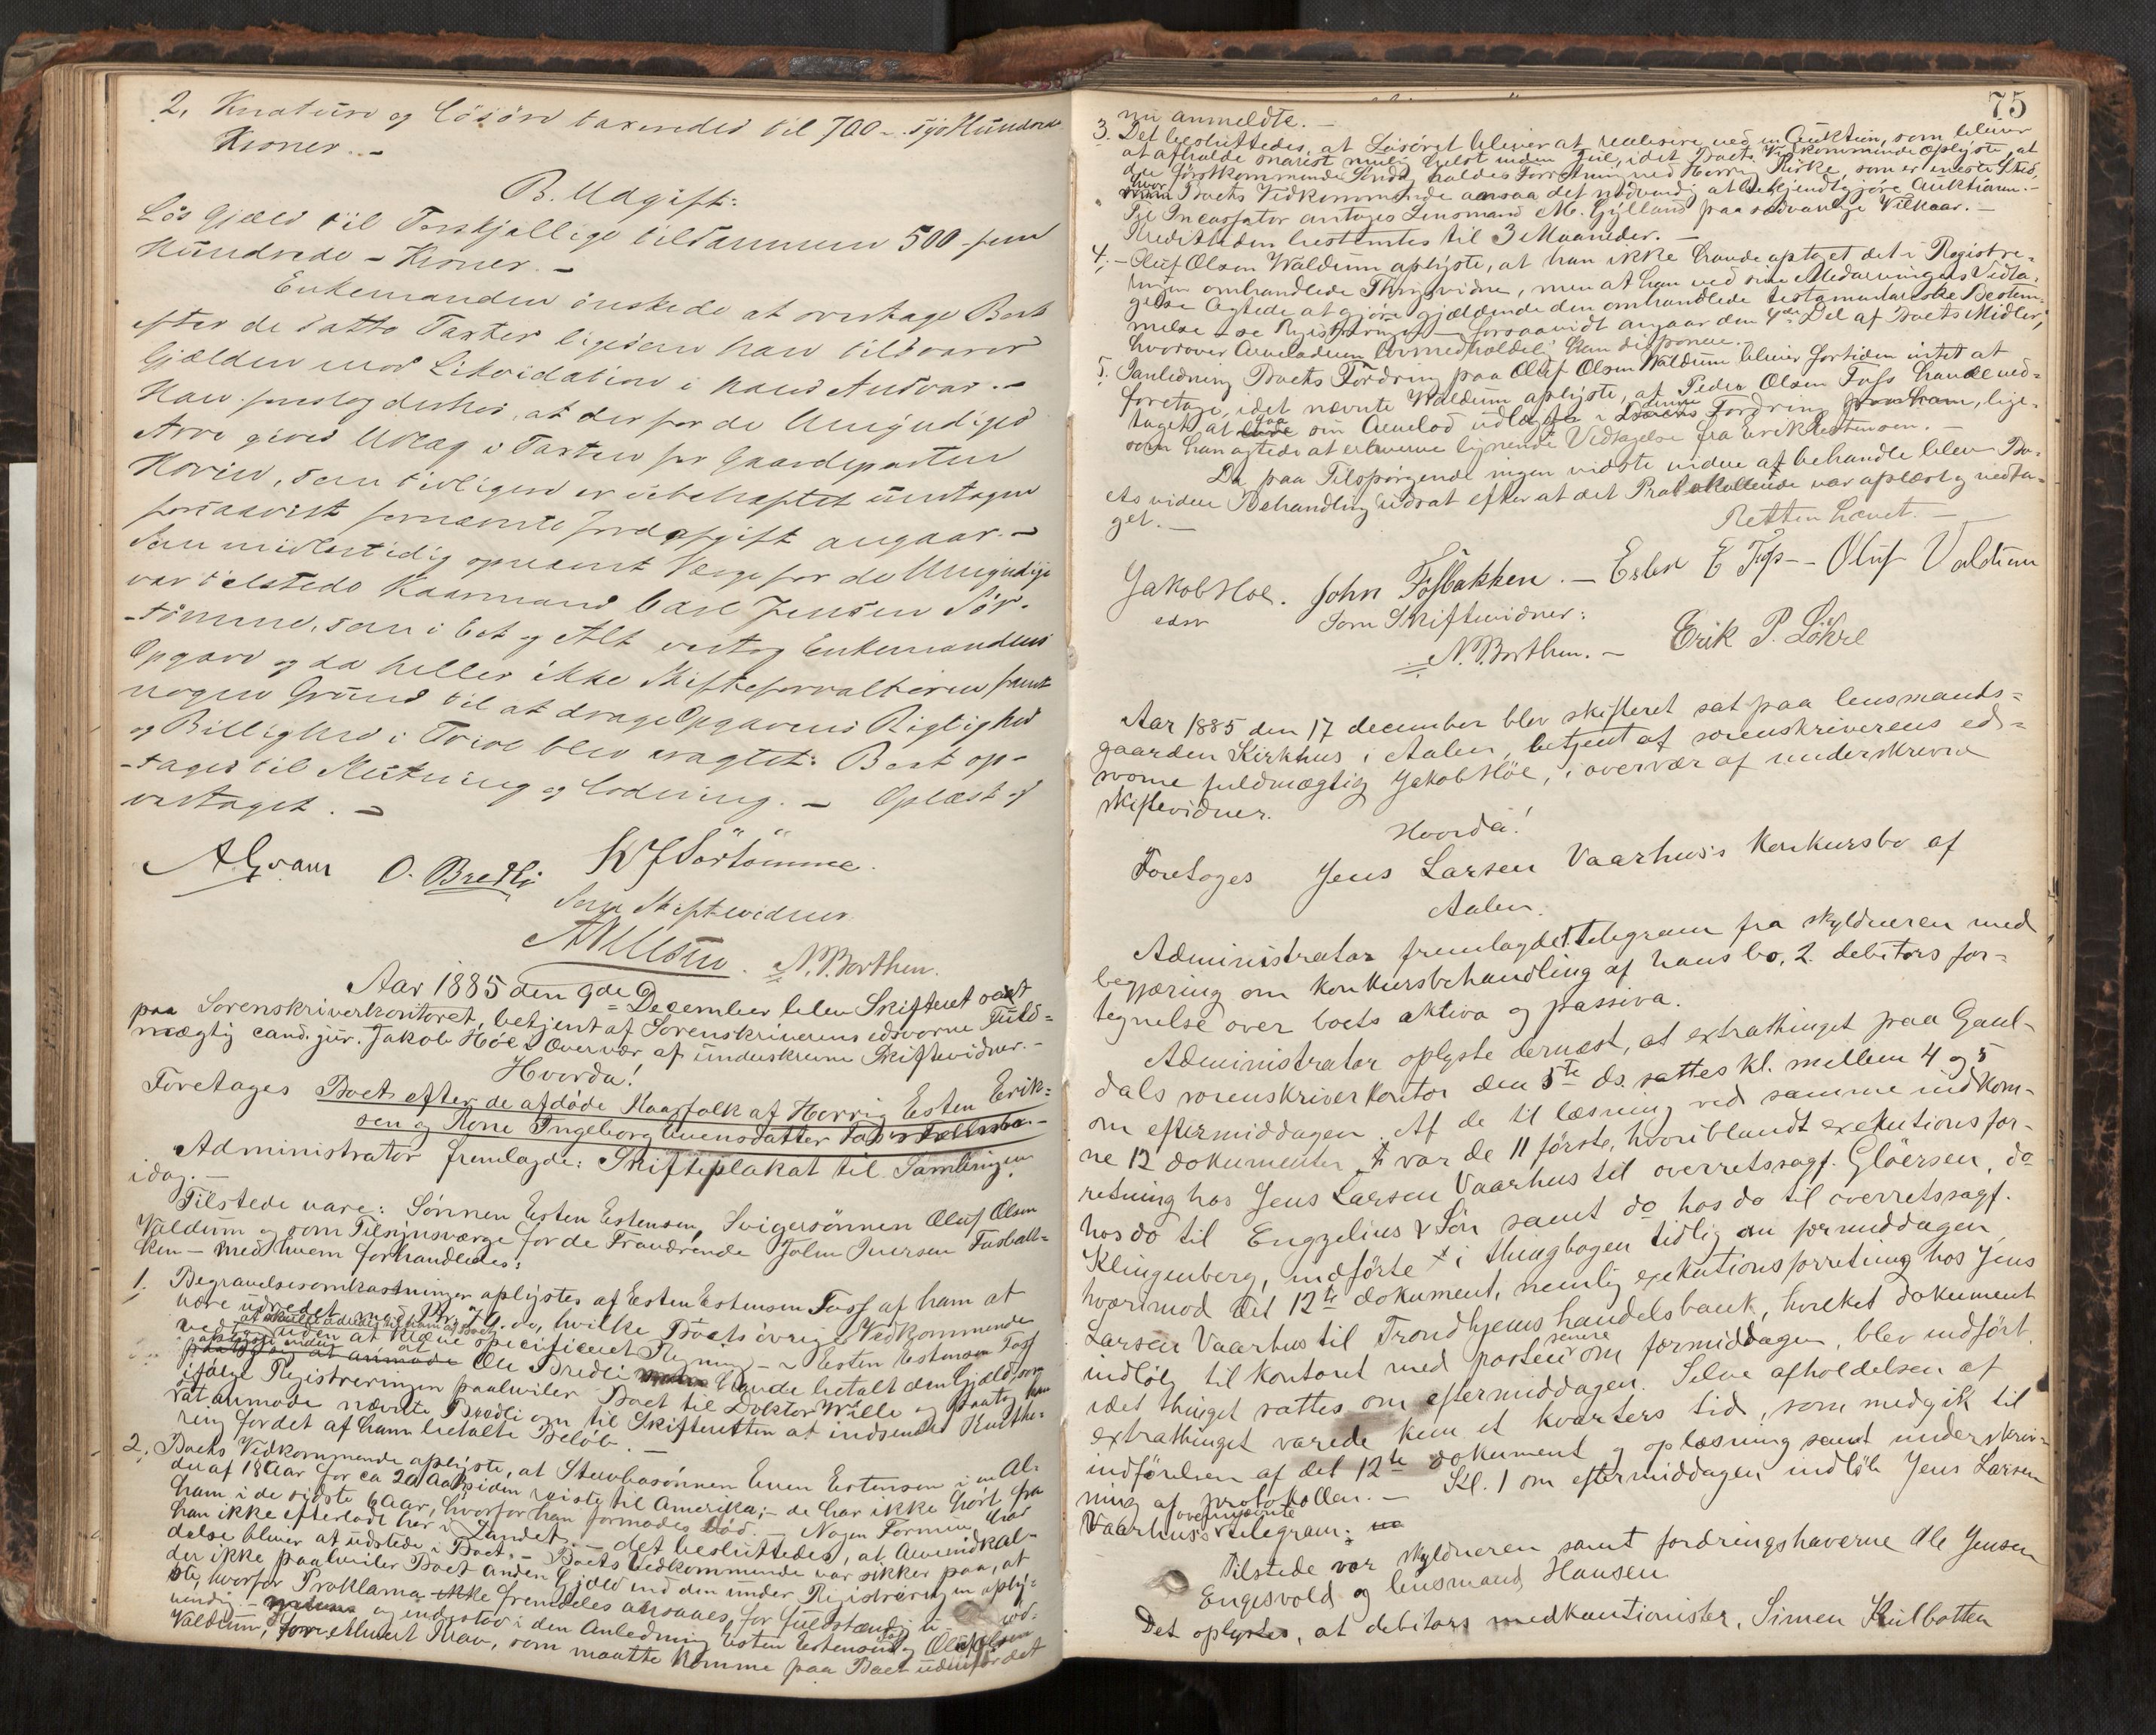 2. Kreature og Løsøre taxeredes til 700 - syv Hundrede
Kroner. -
B. Udgift:
Løs Gjæld til Forskjellige tilsammen 500 - fem
Hundrede - Kroner. -
Enkemanden ønskede at overtage Boet
efter de satte Taxter ligesom han tilsvarer
Gjælden uden Likvidation i hans Ansvar. -
Han foreslog derhos, at der for de Umyndiges
Arv gives Udlag i Taxten for Gaardeparten
Hovin, som tidligere er ubehæftet undtagen
forsaavidt fornævnte Jordafgift angaar. -
Som midlertidig opnævnt Værge for de Umyndige
var tilstede Kaarmand Carl Jensen Sør-
tømme, som i Eet og Alt vedtog Enkemandens
Opgave og da heller ikke Skifteforvalteren fandt
nogen Grund til at drage Opgavens Rigtighed
og Billighed i Tvivl blev eragtet: Boet op-
-tages til Slutning og Lodning. - Oplæst og
vedtaget. -
O. Bredli K J Sørtømme.
Som Skiftevidner
N. P. Borthen.
Aar 1885 den 9de December blev Skifteret sat
paa Sorenskriverkontoret, betjent af Sorenskriverens edsvorne Fuld-
mægtig cand. jur. Jakob Höe i Overvær af underskrevne Skiftevidner. -
Hvorda!
Foretoges Boet efter de afdöde Kaarfolk af Herrig Esten Erik-
sen og Kone Ingeborg Evensdatter Fos's Fællesbo. -
Administrator fremlagde: Skifteplakat til Samlingen
idag. -
Tilstede vare: Sönnen Esten Estensen, Svigersönnen Oluf Olsen
Valdum og som Tilsynsværge for de Fraværende John Iversen Fosbak-
ken - med hvem forhandledes:
1. Begravelsesomkostninger oplystes af Esten Estensen Foss af ham at
være udredet med Kr. 79.00, hvilke Boets övrige Vedkommende
vedtog uden at kræve specificeret Regning - Esten Estensen Foss
Ole Bredli havde betalt den Gjæld som
ifölge Registreringen paahviler Boet til Doktor Wille og paatog han
sig at anmode nævnte Bredli om til Skifteretten at indsende Kvitte-
ring for det af ham betalte Belöb. -
2. Boets Vedkommende oplyste, at Sterbosönnen Even Estensen i en Al-
der af 18 Aar for ca 20 Aar siden reiste til Amerika; - de har ikke hört fra
ham i de sidste 6 Aar, hvorfor han formodes död. - Nogen Formue har
han ikke efterladt her i Landet. - Det besluttedes, at Arveindkal-
delse bliver at udstede i Boet. - Boets Vedkommende var sikker paa, at
der ikke paahviler Boet anden Gjæld end den under Registrering en oply-
ste, hvorfor Proklama ikke fremdeles ansaaes for fuldstændig u nöd-
vendig - og indestod i den Anledning Esten Estensen og Oluf Olsen
Valdum, for ethvert Krav, som maatte komme paa Boet udenfor det
75
nu anmeldte. -
3. Det besluttedes, at Lösöret bliver at realisere ved en Auktion, som bliver
at afholde snarest mulig helst inden Jul, idet Boets Vedkommende oplyste, at
der förstkommende Söndag holdes Forretning ved Herrig Kirke, som er eneste Sted,
hvor Boets Vedkommende ansaa det nödvendig at bekjendtgjöre Auktionen. -
Til Incassator antoges Lensmand M. Gylland paa sædvanlige Vilkaar. -
Kredittiden bestemtes til 3 Maaneder. -
4. - Oluf Olsen Waldum oplyste, at han ikke havde optaget det i Registre-
ringen omhandlede Thingsvidne, men at han ved sine Medarvingers Vedta-
gelse agtede at gjöre gjældende den omhandlede testamentariske Bestem-
melse - se Registreringen - forsaavidt angaar den 4de Del af Boets Midler,
hvorover Arveladeren lovmedholdeli kan disponere.
5. I anledning Boets Fordring paa Oluf Olsen Waldum bliver fortiden intet at
foretage, idet nævnte Waldum oplyste, at Peder Olsen Foss havde ved-
taget at faa sin Arvelod udlagt i denne Fordring paa ham, lige-
som han agtede at erhverve lignende Vedtagelse fra Erik Estensen. -
Da paa Tilspörgende ingen vidste videre at behandle blev Bo-
ets videre Behandling udsat efter at det Protokollerede var oplæst og vedta-
get. -
Retten hævet. -
Jakob Höe. John Fossbakken. - Esten E Foss - - Oluf Valdum
edsv Som Skiftevidner:
N. P. Borthen. - Erik P. Løkre
Aar 1885 den 17 december blev skifteret sat paa lensmands-
gaarden Kirkhus i Aalen, betjent af sorenskriverens ed-
svorne fuldmægtig Jakob Höe, i overvær af underskrevne
skiftevidner.
Hvorda!
Foretoges Jens Larsen Vaarhus's Konkursbo af
Aalen.
Administrator fremlagde 1. telegram fra skyldneren med
begjæring om konkursbehandling af hans bo, 2. debitors for-
tegnelse over boets aktiva og passiva.
Administrator oplyste dernæst, at extrathinget paa Gaul-
dals sorenskriverkontor den 5te ds. sattes kl. mellem 4 og 5
om eftermiddagen. Af de til læsning ved samme indkom-
ne 12 dokumenter var de 11 förste, hvoriblandt exekutionsfor-
retning hos Jens Larsen Vaarhus til overretssagf. Glöersen, do
hos do til Engzelius & Sön samt do hos do til overretssagf.
Klingenberg, indförte i thingbogen tidlig om formiddagen,
hvorimod det 12te dokument, nemlig exekutionsforretning hos Jens
Larsen Vaarhus til Trondhjems handelsbank, hvilket dokument
indlöb til kontoret med posten senere om formiddagen, blev indfört
idet thinget sattes om eftermiddagen. Selve afholdelsen af
extrathinget varede kun et kvarters tid, som medgik til
indförelsen af det 12te dokument og oplæsning samt underskriv-
ning af protokollen. - Kl. 1 om eftermiddagen indlöb Jens Larsen
Vaarhus's ovennævnte telegram.
Tilstede var skyldneren samt fordringshaverne Ole Jensen
Engesvold og lensmand Hansen
Det oplystes, at debitors medkautionister, Simen